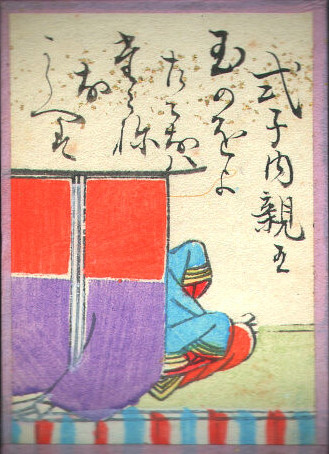 式子内親王
玉のをよ
たえなハ
たえね
な
からへは